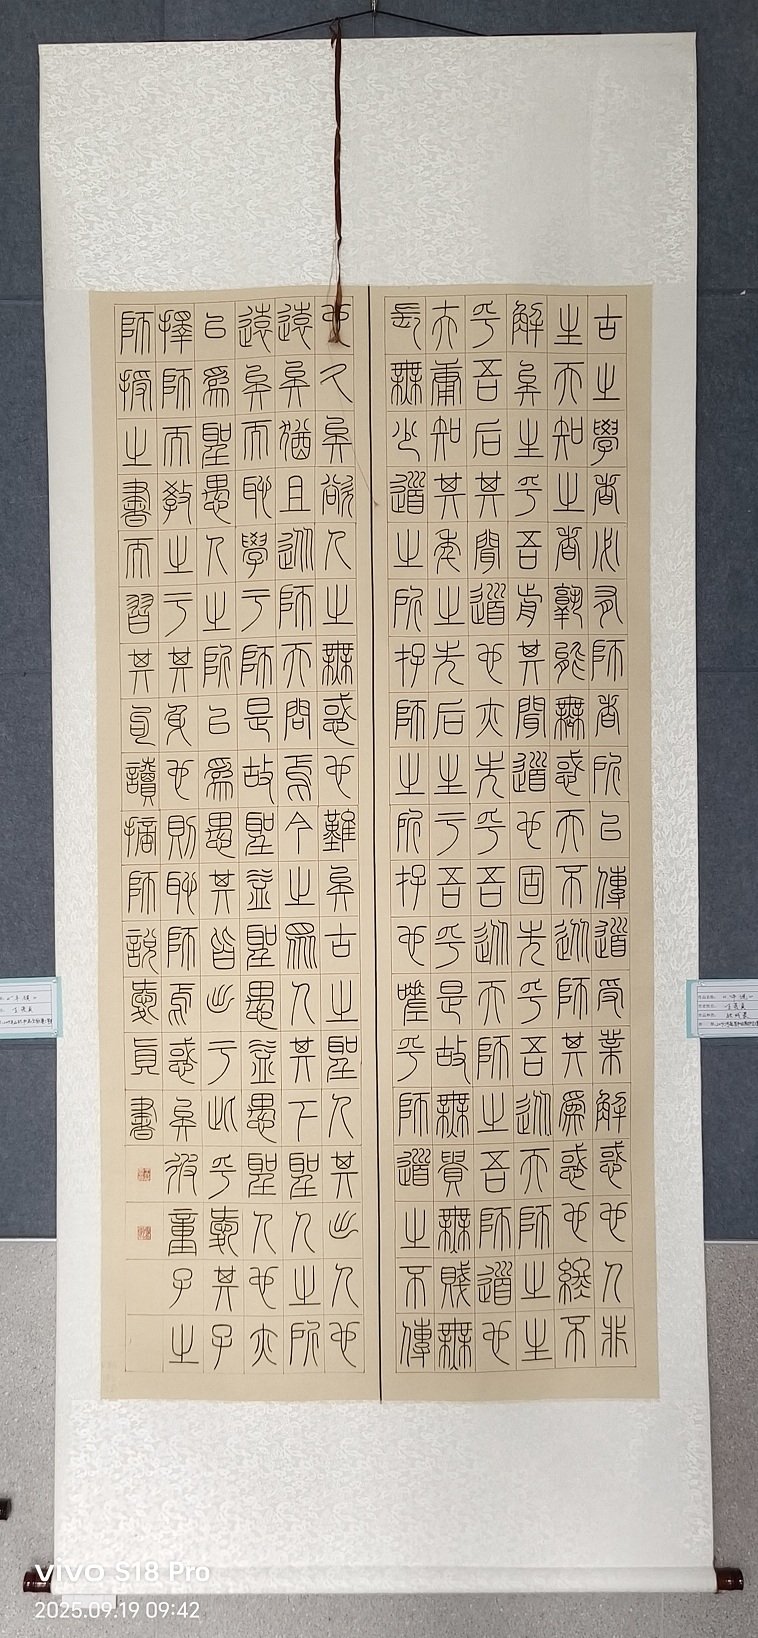 古之學者必有師者所以傳道受業解惑也人非
生而知之者孰能無惑而不從師其為惑也終不
解矣生乎吾前其聞道也固先乎吾從而師之生
乎吾后其聞道也亦先乎吾從而師之吾師道也
夫庸知其年之先后生于吾乎是故無貴無賤無
長無少道之所存師之所存也嗟乎師道之不傳
也久矣欲人之無惑也難矣古之聖人其出人也
遠矣猶且從師而問焉今之眾人其下聖人之所
遠矣而恥學于師是故聖益聖愚益愚聖人也亦
以為聖愚人之所以為愚其皆出于此乎愛其子
擇師而教之于其身也則恥師焉惑矣彼童子之
師授之書而習其句讀摘師說愛貞書
vivo S18 Pro
2025.09.19 09:42